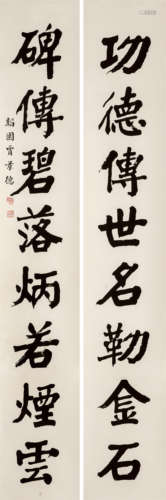 功德傳世名勒金石
碑傳碧落炳若煙雲
賈景德